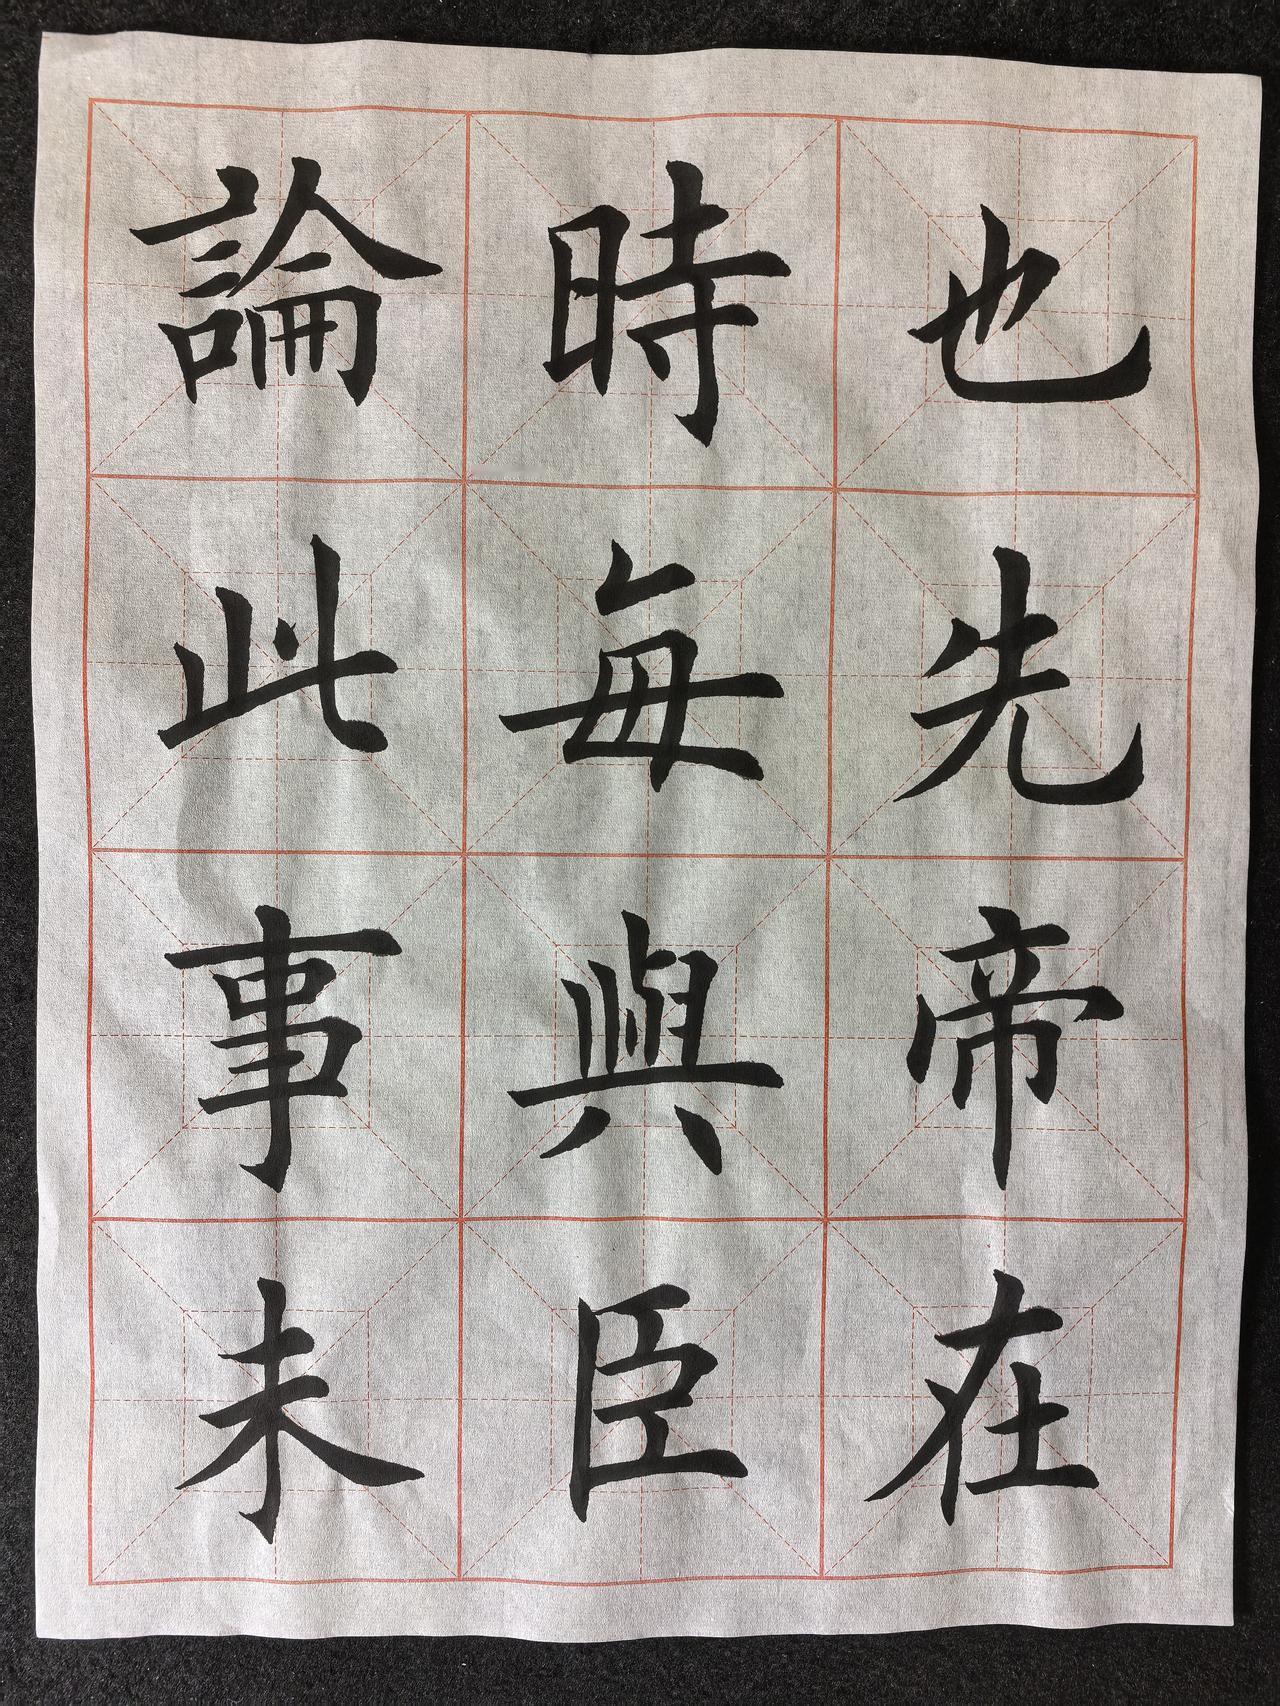 也先帝在
時每與臣
論此事未